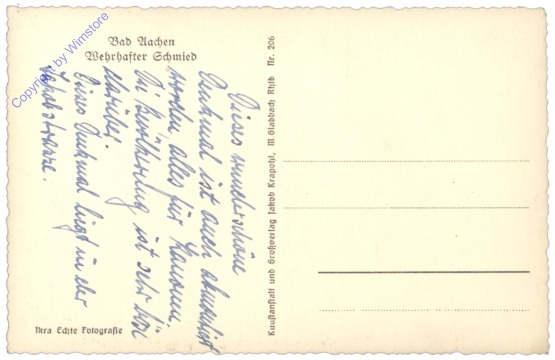 Bad Aachen
Wehrhafter Schmied
Dieses wunderschöne
Denkmal ist auch demontiert
worden, alles für Kanonen.
Die Bevölkerung ist sehr böse
darüber.
Dieses Denkmal liegt in der
Jakobstrasse.
Ikra Echte Fotografie
Kunstanstalt und Großverlag Jakob Krapohl, M. Gladbach Rhld Nr. 206
Copyright by Wimstore